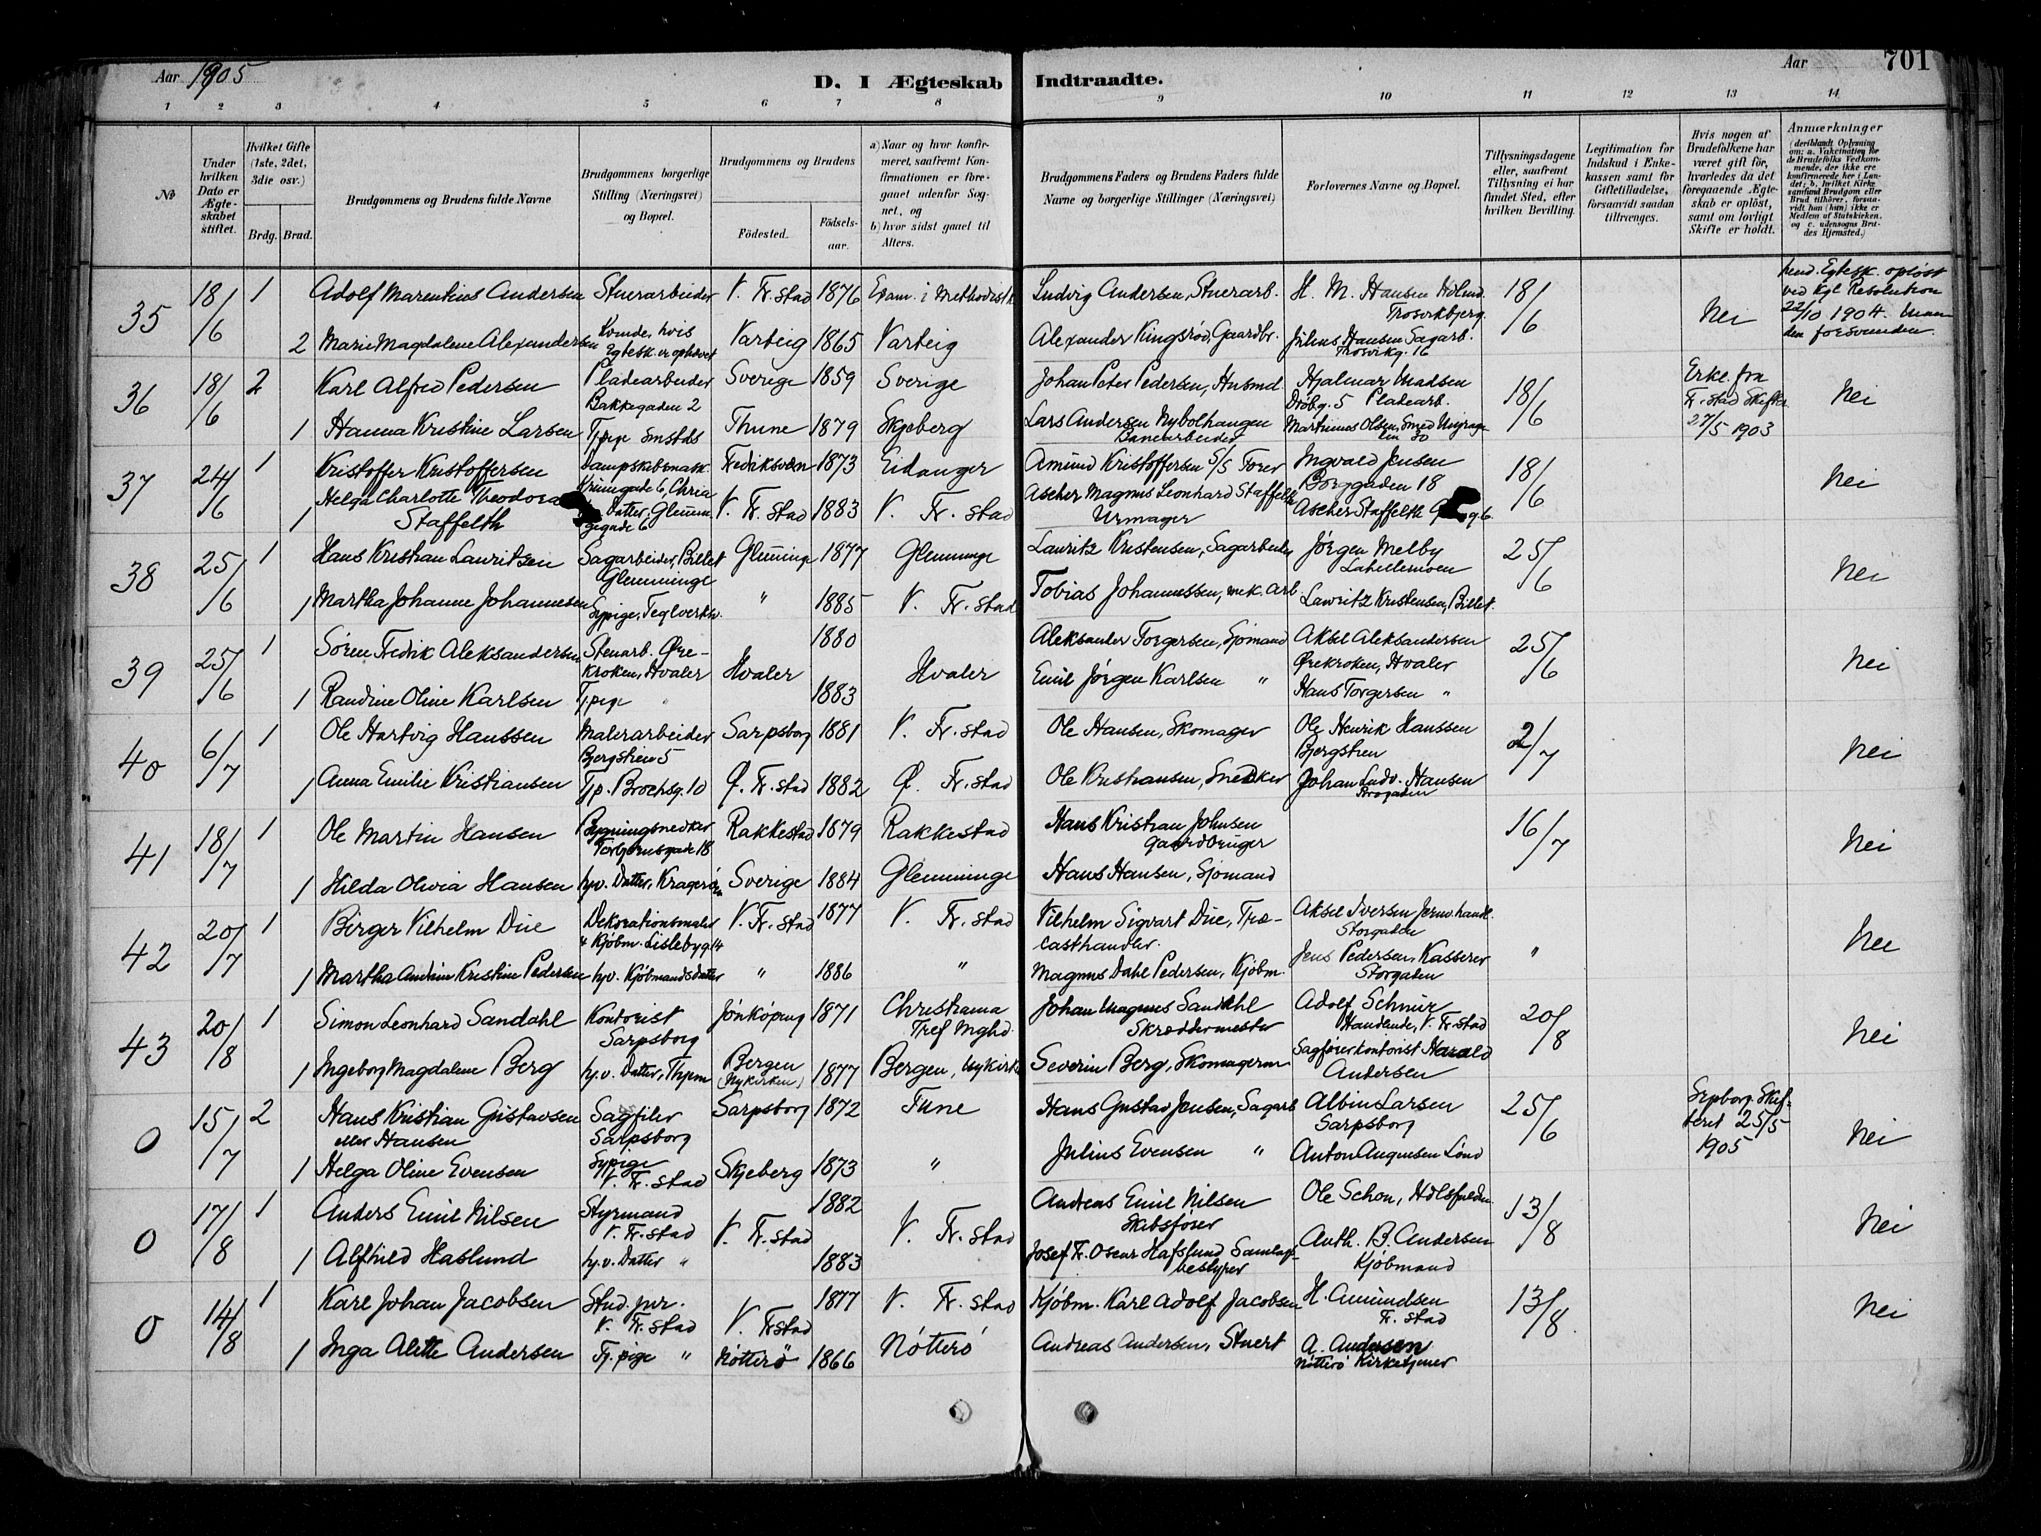 Aar 1905
D. I Ægteskab Indtraadte.
Aar 701
1 2 3 4 5 6 7 8 9 10 11 12 13 14
№
Under hvilken Dato er Ægteskabet stiftet.
Hvilket Gifte (1ste, 2det, 3die osv.)
Brdg. Brud.
Brudgommens og Brudens fulde Navne
Brudgommens borgerlige Stilling (Næringsvei) og Bopæl.
Brudgommens og Brudens
Födested. Födsels-aar.
a) Naar og hvor konfirmeret, saafremt Konfirmationen er foregaaet udenfor Sognet, og
b) hvor sidst gaaet til Alters.
Brudgommens Faders og Brudens Faders fulde Navne og borgerlige Stillinger (Næringsvei)
Forlovernes Navne og Bopæl.
Tillysningsdagene eller, saafremt Tillysning ei har fundet Sted, efter hvilken Bevilling.
Legitimation for Indskud i Enkekassen samt for Giftetilladelse, forsaavidt saadan tiltrænges.
Hvis nogen af Brudefolkene har været gift för, hvorledes da det foregaaende Ægteskab er oplöst, samt om lovligt Skifte er holdt.
Anmærkninger (deriblandt Oplysning om: a. Vakcination for de Brudefolks Vedkommende, der ikke ere konfirmerede her i Landet; b. hvilket Kirkesamfund Brudgom eller Brud tilhörer, forsaavidt han (hun) ikke er Medlem af Statskirken, og c. udensogns Brudes Hjemsted.)
35 18/6 1 Adolf Marentius Andersen Stuerarbeider V. Fr.stad 1876 Exam. i Methodistk. Ludvig Andersen, Stuerarb. H. M. Hansen Holmd. Trosvikbjerg. 18/6 Nei hend. Egtesk. opløst ved Kgl Resolution 22/10 1904. Manden forsvunden.
2 Marie Magdalene Alexandersen Kvinde, hvis Egtesk. er ophævet Varteig 1865 Varteig Alexander Kingsrød, Gaardbr. Julius Hansen Sagarb. Trosvikg. 16
36 18/6 2 Karl Alfred Pedersen Pladearbeider Bakkegaden 2 Sverige 1859 Sverige Johan Peter Pedersen, Husmd Hjalmar Madsen Dröbg. 5 Pladearb. 18/6 Erkl. fra Fr.stad Skifter 27/5 1903 Nei
1 Hanna Kristine Larsen Tjpige Smstds Thune 1879 Skjeberg Lars Andersen Nybolhaugen Banearbeider Martinius Olsen, Smed
37 24/6 1 Kristoffer Kristoffersen Dampskibsmask. Krumgade 6, Chria Fredriksværn 1873 Eidanger Amund Kristoffersen S/S Torer Ingvald Jensen Borggaden 18 18/6 Nei
1 Helga Charlotte Theodora Staffelth Datter, Glemmengegade 6 V. Fr. stad 1883 V. Fr. stad Ascher Magnus Leonhard Staffelth Urmager Ascher Staffelth
38 25/6 1 Hans Kristian Lauritzen Sagarbeider, Billet Glemminge Glemminge 1877 Glemminge Lauritz Kristensen, Sagarbeider Jörgen Melby Labellemoen 25/6 Nei
1 Martha Johanne Johannesen Sypige, Teglverksv. " 1885 V. Fr. stad Tobias Johannessen, mek. arb. Lauritz Kristensen, Billet.
39 25/6 1 Sören Fredrik Aleksandersen Stenarb. Ørekroken, Hvaler Hvaler 1880 Hvaler Aleksander Torgersen, Sjömand Aksel Aleksandersen Ørekroken, Hvaler 25/6 Nei
1 Randine Oline Karlsen Tjpige " 1883 Emil Jörgen Karlsen " Hans Torgersen "
40 6/7 1 Ole Hartvig Hanssen Malerarbeider Bjergstien 5 Sarpsborg 1881 V. Fr. stad Ole Hansen, Skomager Ole Henrik Hanssen Bjergstien 2/7 Nei
1 Anna Emilie Kristiansen Tjp. Brochsg. 10 Ø. Fr. stad 1882 Ø. Fr. stad Ole Kristiansen, Snedker Johan Ludv. Hansen Storgaden
41 18/7 1 Ole Martin Hansen Bygningsnedker Torbjørnsgade 18 Rakkestad 1879 Rakkestad Hans Kristian Johnsen Gaardbruger 16/7 Nei
1 Hilda Olivia Hansen hjv. Datter, Kragerøen Sverige 1884 Glemminge Hans Hansen, Sjömand
42 20/7 1 Birger Vilhelm Due Dekorationsmaler & Kjöbm. Lislebyg. 14 V. Fr. stad 1877 V. Fr. stad Vilhelm Sigvart Due, Trælasthandler. Aksel Iversen Jernv.handl. Storgaden " Nei
1 Martha Andrine Kristine Pedersen hjv. Kjöbmands Datter " 1886 " Magnus Dahl Pedersen, Kjöbm. Jens Pedersen, Kasserer Storgaden
43 20/8 1 Simon Leonhard Sandahl Kontorist Sarpsborg Jönköping 1871 Christiania Tref Mghd. Johan Magnus Sandahl Skræddermester Adolf Schnur Handlende, V. Fr. stad 20/8 Nei
1 Ingeborg Magdalene Berg hj.v. Datter, Bergen (Nykirken) 1877 Bergen, Nykirk. Severin Berg, Skomagerm Sagførerkontorist Harald Andersen
0 15/7 2 Hans Kristian Gustavsen eller Hansen Sagfiler Sarpsborg Sarpsborg 1872 Tune Hans Gustav Jensen, Sagarb Albin Larsen Sarpsborg 25/6 Srpborg. Skifteret 25/5 1905 Nei
1 Helga Oline Evensen Sypige V. Fr. stad Skjeberg 1873 " Julius Evensen " Anton Augunsen Lønd
0 17/8 1 Anders Emil Nilsen Styrmand V. Fr. stad V. Fr. stad 1882 V. Fr. stad Andreas Emil Nilsen Skibsfører Ole Schon, 13/8 Nei
1 Alfhild Haslund hj.v. Datter " 1883 Josef Fr. Oscar Hafslund Samlagsbestyrer Anth. B. Andersen Kjöbmand
0 14/8 1 Karl Johan Jacobsen Stud. jur. V. Fr. stad V. Fr stad 1877 V. Fr. stad Kjöbm. Karl Adolf Jacobsen H. Amundsen Fr. stad 13/8 Nei
1 Inga Alette Andersen Tj. pige " Nötterö 1866 Nötterö Andreas Andersen, Stuert A. Andersen Nötterö Kirketjener